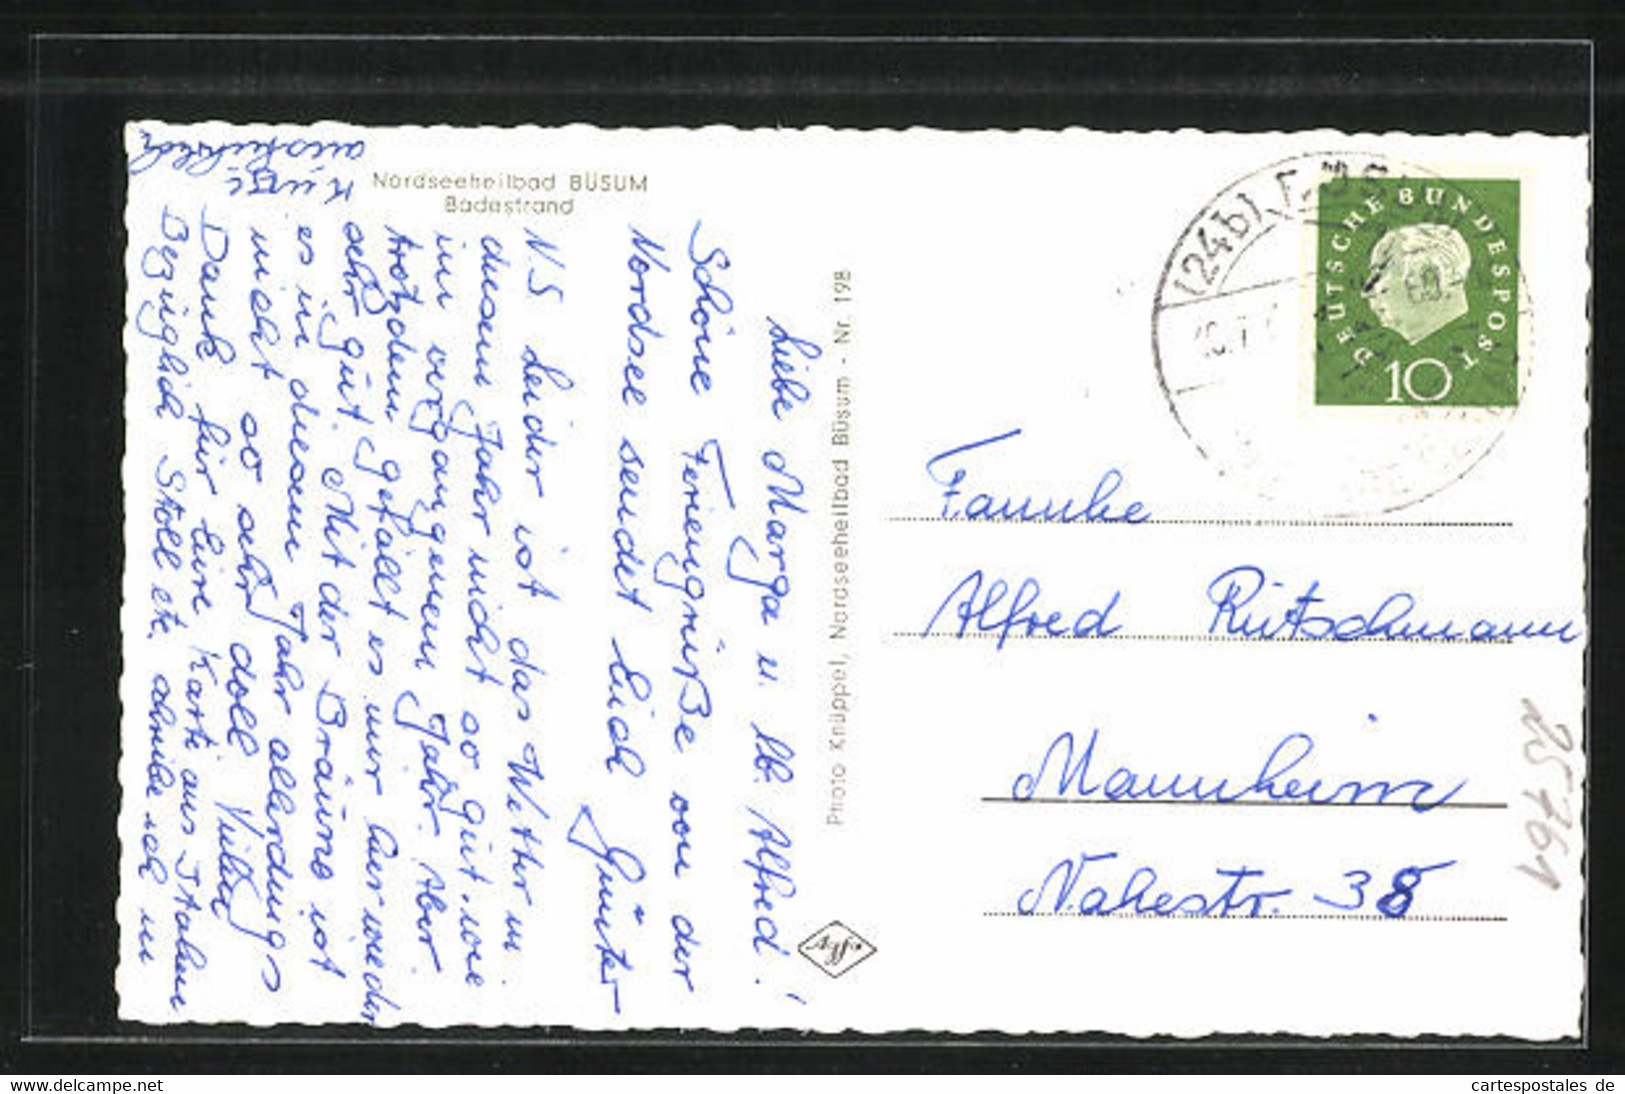 Nordseeheilbad BÜSUM
Badestrand
Liebe Marga u. lb. Alfred!
Schöne Feriengrüße von der
Nordsee sendet Euch
Günter
N.S. Leider ist das Wetter in
diesem Jahr nicht so gut, wie
im vergangenem Jahr. Aber
trotzdem gefällt es mir hier wieder
sehr gut. Mit der Bräune ist
es in diesem Jahr allerdings
nicht so sehr doll. Vielen
Dank für Eure Karte aus Italien
Bezüglich Stoll etc. schreibe ich in
Kürze
ausführlich
Photo Knüppel, Nordseeheilbad Büsum - Nr. 198
Agfa
(24b)
DEUTSCHE BUNDESPOST
10
Familie
Alfred Rütschmann
Mannheim
Nahestr. 38
25761
www.delcampe.net
cartespostales de